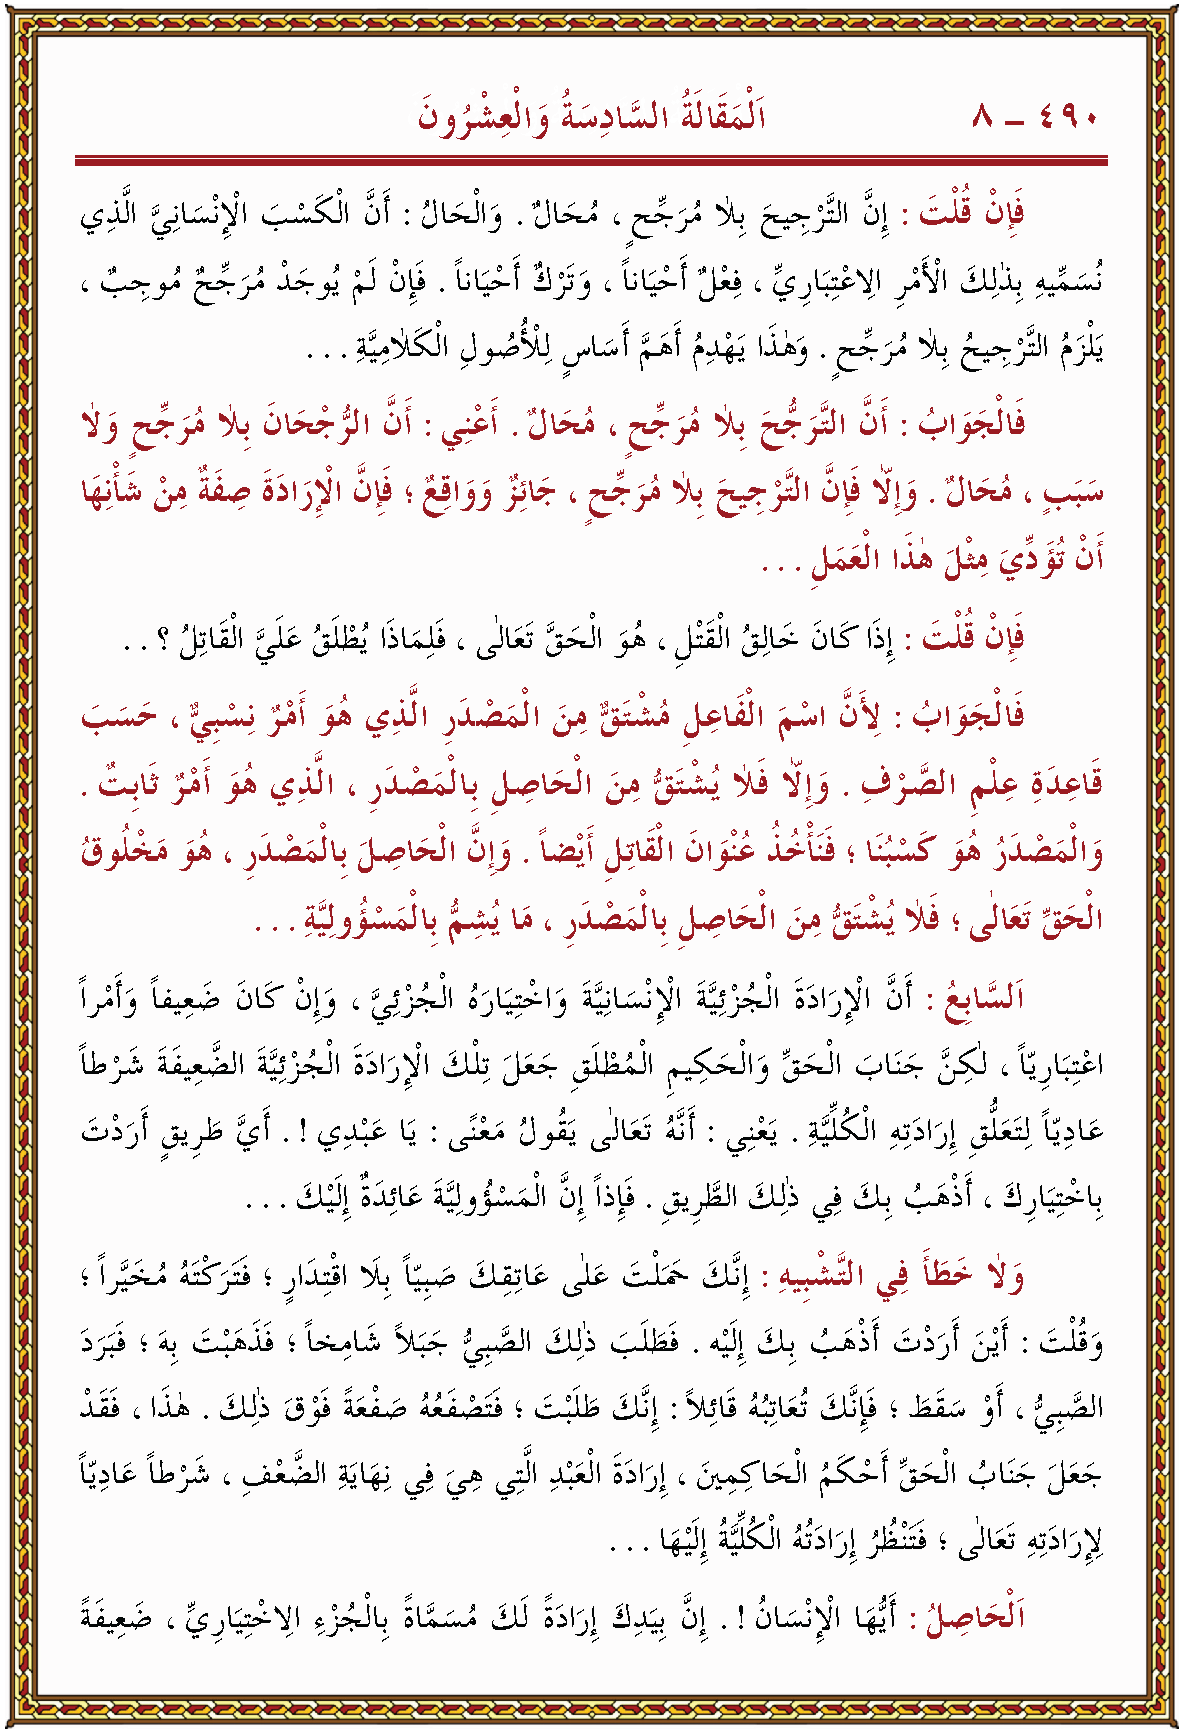 ٤٩٠ – ٨ اَلْمَقَالَةُ السَّادِسَةُ وَالْعِشْرُونَ
فَإِنْ قُلْتَ : إِنَّ التَّرْجِيحَ بِلٰا مُرَجِّحٍ ، مُحَالٌ . وَالْحَالُ : أَنَّ الْكَسْبَ الْإِنْسَانِيَّ الَّذِي
نُسَمِّيهِ بِذٰلِكَ الْأَمْرِ الِاعْتِبَارِيِّ ، فِعْلٌ أَحْيَاناً ، وَتَرْكٌ أَحْيَاناً . فَإِنْ لَمْ يُوجَدْ مُرَجِّحٌ مُوجِبٌ ،
يَلْزَمُ التَّرْجِيحُ بِلٰا مُرَجِّحٍ . وَهٰذَا يَهْدِمُ أَهَمَّ أَسَاسٍ لِلْأُصُولِ الْكَلٰامِيَّةِ . . .
فَالْجَوَابُ : أَنَّ التَّرَجُّحَ بِلٰا مُرَجِّحٍ ، مُحَالٌ . أَعْنِي : أَنَّ الرُّجْحَانَ بِلٰا مُرَجِّحٍ وَلٰا
سَبَبٍ ، مُحَالٌ . وَإِلّٰا فَإِنَّ التَّرْجِيحَ بِلٰا مُرَجِّحٍ ، جَائِزٌ وَوَاقِعٌ ؛ فَإِنَّ الْإِرَادَةَ صِفَةٌ مِنْ شَأْنِهَا
أَنْ تُؤَدِّيَ مِثْلَ هٰذَا الْعَمَلِ . . .
فَإِنْ قُلْتَ : إِذَا كَانَ خَالِقُ الْقَتْلِ ، هُوَ الْحَقَّ تَعَالٰى ، فَلِمَاذَا يُطْلَقُ عَلَيَّ الْقَاتِلُ ؟ . .
فَالْجَوَابُ : لِأَنَّ اسْمَ الْفَاعِلِ مُشْتَقٌّ مِنَ الْمَصْدَرِ الَّذِي هُوَ أَمْرٌ نِسْبِيٌّ ، حَسَبَ
قَاعِدَةِ عِلْمِ الصَّرْفِ . وَإِلّٰا فَلٰا يُشْتَقُّ مِنَ الْحَاصِلِ بِالْمَصْدَرِ ، الَّذِي هُوَ أَمْرٌ ثَابِتٌ .
وَالْمَصْدَرُ هُوَ كَسْبُنَا ؛ فَنَأْخُذُ عُنْوَانَ الْقَاتِلِ أَيْضاً . وَإِنَّ الْحَاصِلَ بِالْمَصْدَرِ ، هُوَ مَخْلُوقُ
الْحَقِّ تَعَالٰى ؛ فَلٰا يُشْتَقُّ مِنَ الْحَاصِلِ بِالْمَصْدَرِ ، مَا يُشِمُّ بِالْمَسْؤُولِيَّةِ . . .
اَلسَّابِعُ : أَنَّ الْإِرَادَةَ الْجُزْئِيَّةَ الْإِنْسَانِيَّةَ وَاخْتِيَارَهُ الْجُزْئِيَّ ، وَإِنْ كَانَ ضَعِيفاً وَأَمْراً
اعْتِبَارِيّاً ، لٰكِنَّ جَنَابَ الْحَقِّ وَالْحَكِيمِ الْمُطْلَقِ جَعَلَ تِلْكَ الْإِرَادَةَ الْجُزْئِيَّةَ الضَّعِيفَةَ شَرْطاً
عَادِيّاً لِتَعَلُّقِ إِرَادَتِهِ الْكُلِّيَّةِ . يَعْنِي : أَنَّهُ تَعَالٰى يَقُولُ مَعْنًى : يَا عَبْدِي ! . أَيَّ طَرِيقٍ أَرَدْتَ
بِاخْتِيَارِكَ ، أَذْهَبُ بِكَ فِي ذٰلِكَ الطَّرِيقِ . فَإِذاً إِنَّ الْمَسْؤُولِيَّةَ عَائِدَةٌ إِلَيْكَ . . .
وَلٰا خَطَأَ فِي التَّشْبِيهِ : إِنَّكَ حَمَلْتَ عَلٰى عَاتِقِكَ صَبِيّاً بِلَا اقْتِدَارٍ ؛ فَتَرَكْتَهُ مُخَيَّراً ؛
وَقُلْتَ : أَيْنَ أَرَدْتَ أَذْهَبُ بِكَ إِلَيْهِ . فَطَلَبَ ذٰلِكَ الصَّبِيُّ جَبَلاً شَامِخاً ؛ فَذَهَبْتَ بِهَ ؛ فَبَرَدَ
الصَّبِيُّ ، أَوْ سَقَطَ ؛ فَإِنَّكَ تُعَاتِبُهُ قَائِلاً : إِنَّكَ طَلَبْتَ ؛ فَتَصْفَعُهُ صَفْعَةً فَوْقَ ذٰلِكَ . هٰذَا ، فَقَدْ
جَعَلَ جَنَابُ الْحَقِّ أَحْكَمُ الْحَاكِمِينَ ، إِرَادَةَ الْعَبْدِ الَّتِي هِيَ فِي نِهَايَةِ الضَّعْفِ ، شَرْطاً عَادِيّاً
لِإِرَادَتِهِ تَعَالٰى ؛ فَتَنْظُرُ إِرَادَتُهُ الْكُلِّيَّةُ إِلَيْهَا . . .
اَلْحَاصِلُ : أَيُّهَا الْإِنْسَانُ ! . إِنَّ بِيَدِكَ إِرَادَةً لَكَ مُسَمَّاةً بِالْجُزْءِ الِاخْتِيَارِيِّ ، ضَعِيفَةً